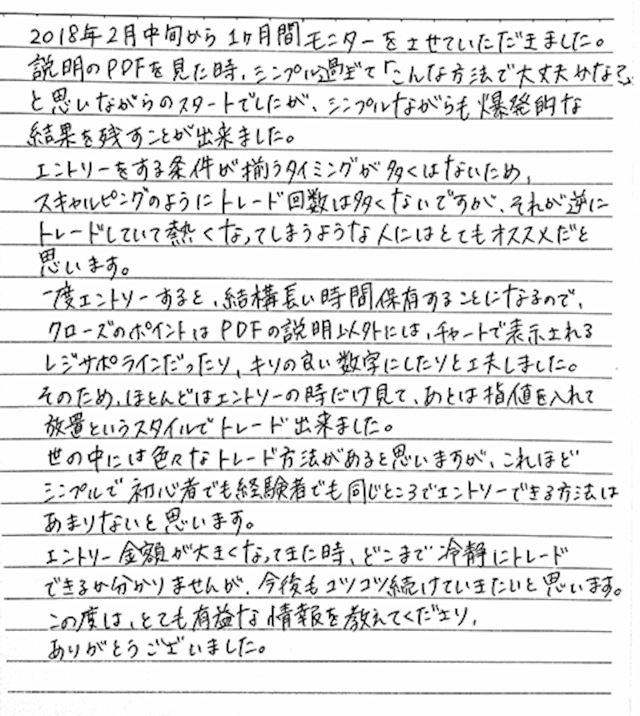 2018年2月中旬から1ヶ月間モニターをさせていただきました。
説明のPDFを見た時、シンプル過ぎて「こんな方法で大丈夫かな?」
と思いながらのスタートでしたが、シンプルながらも爆発的な
結果を残すことが出来ました。
エントリーをする条件が揃うタイミングが多くはないため、
スキャルピングのようにトレード回数は多くないですが、それが逆に
トレードしていて熱くなってしまうような人にはとてもオススメだと
思います。
一度エントリーすると、結構長い時間保有することになるので、
クローズのポイントはPDFの説明以外には、チャートで表示される
レジサポラインだったり、キリの良い数字にしたりと工夫しました。
そのため、ほとんどはエントリーの時だけ見て、あとは指値を入れて
放置というスタイルでトレード出来ました。
世の中には色々なトレード方法があると思いますが、これほど
シンプルで初心者でも経験者でも同じところでエントリーできる方法は
あまりないと思います。
エントリー金額が大きくなってきた時、どこまで冷静にトレード
できるか分かりませんが、今後もコツコツ続けていきたいと思います。
この度は、とても有益な情報を教えてくださり、
ありがとうございました。